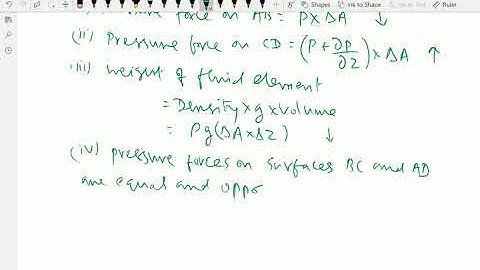 force on AB = P × ΔA ↓
(ii) Pressure force on CD = (P + ∂P/∂Z) × ΔA ↑
iii) weight of fluid element
= Density × g × volume
= ρg (ΔA × ΔZ) ↓
(iv) pressure forces on surfaces BC and AD
are equal and oppo